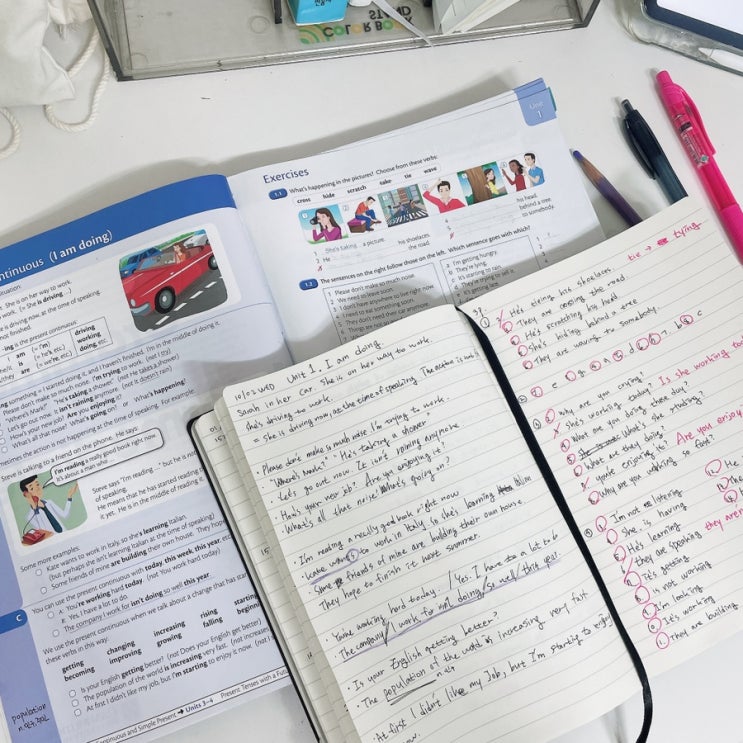 COLOR BOOK
STAND
ntinuous (I am doing)
She is on her way to work.
(= She is driving ...)
is driving now, at the time of speaking.
not finished.
-ing is the present continuous:
am (= I'm)
driving
is (= he's etc.)
working
are (= we're etc.)
doing etc.
something = I started doing it, and I haven't finished. I'm in the middle of doing it.
Please don't make so much noise. I'm trying to work. (not I try)
'Where's Mark?' 'He's taking a shower.' (not He takes a shower)
Let's go out now. It isn't raining anymore. (not It doesn't rain)
How's your new job? Are you enjoying it?
What's all that noise? What's going on? or What's happening?
the action is not happening at the time of speaking. For example:
Steve is talking to a friend on the phone. He says:
I'm reading a really good book right now.
It's about a man who ...
Steve says 'I'm reading ...' but he is not
He means that he has started reading
it yet. He is in the middle of reading it.
Some more examples:
Kate wants to work in Italy, so she's learning Italian.
(but perhaps she isn't learning Italian at the time of speaking)
Some friends of mine are building their own house. They hope
You can use the present continuous with today, this week, this year, etc.
A: You're working hard today. (not You work hard today)
B: Yes, I have a lot to do.
The company I work for isn't doing so well this year.
C
We use the present continuous when we talk about a change that has star
these verbs in this way:
getting changing increasing rising starting
becoming improving growing falling beginnin
Is your English getting better? (not Does your English get better)
The population of the world is increasing very fast. (not increases)
At first I didn't like my job, but I'm starting to enjoy it now. (not I st
population
Continuous and Simple Present → Units 3–4 Present Tenses with a Futu
Unit
1
Exercises
1.1 What's happening in the pictures? Choose from these verbs:
cross hide scratch take tie wave
She's taking a picture.
his shoelaces.
the road.
his head.
behind a tree.
to somebody.
1.2 The sentences on the right follow those on the left. Which sentence goes with which?
1 Please don't make so much noise.
2 We need to leave soon.
3 I don't have anywhere to live right now.
4 I need to eat something soon.
5 They don't need their car anymore.
6 Things are not so
I'm getting hungry.
They're lying.
It's starting to rain.
They're trying to sell it.
It's getting late.
10/02 WED Unit 1. I am doing.
Sarah in her car. She is on her way to work.
She's driving to work.
= she is driving now, at the time of speaking. The action is not
· Please don't make so much noise I'm trying to work.
· "Where's Mark?" "He's taking a shower"
· Let's go out now. It isn't raining anymore
· How's your new job? Are you enjoying it?
· What's all that noise? What's going on?
· I'm reading a really good book right now
· Kate wants to work in Italy so she's learning Italian
· Some friends of mine are building their own house.
They hope to finish it next summer.
· You're working hard today. / Yes. I have to a lot to do
· The company I work for not doing so well this year.
· Is your English getting better?
· The population of the world is increasing very fast
· At first I didn't like my Job, but I'm starting to enjoy
now.
He's tieing his shoelaces tie → tying
They are crossing the road.
He's scratching his head
She's hiding behind a tree
They are waving to somebody.
Why are you crying?
She's working today? Is she working tod
What are you doing these day?
What's she studying?
What are they doing?
you're enjoying it? Are you enjoyi
Why are you working so fast?
I'm not listening
She is having
He's learning
they are speaking they aren
It's getting
is not working
I'm looking
It's working
They are building